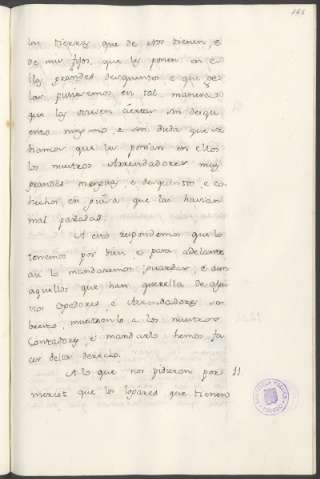 las tierras que de Nos tienen e
de mis fijos, que les ponen en e
llos grandes descuentos e que ge
las pusieremos en tal manera
que les saliesen ciertas sin descu
ento ninguno e sin duda que sa
biamos que les ponian en ellos
los nuestros Arrendadores muy
grandes menguas, e descuentos, e co
hechos, en que las havian
mal pagadas.
A esto respondemos que lo
tenemos por bien e para adelante
asi lo mandaremos guardar, e aun
aquellos que han querella de
cogedores, e Arrendadores so
breito, muestrenlo a los nuestros
Contadores, e mandarlo hemos fa
cer dello derecho.
A lo que nos pidieron por 11
mercet que los logares que tienen